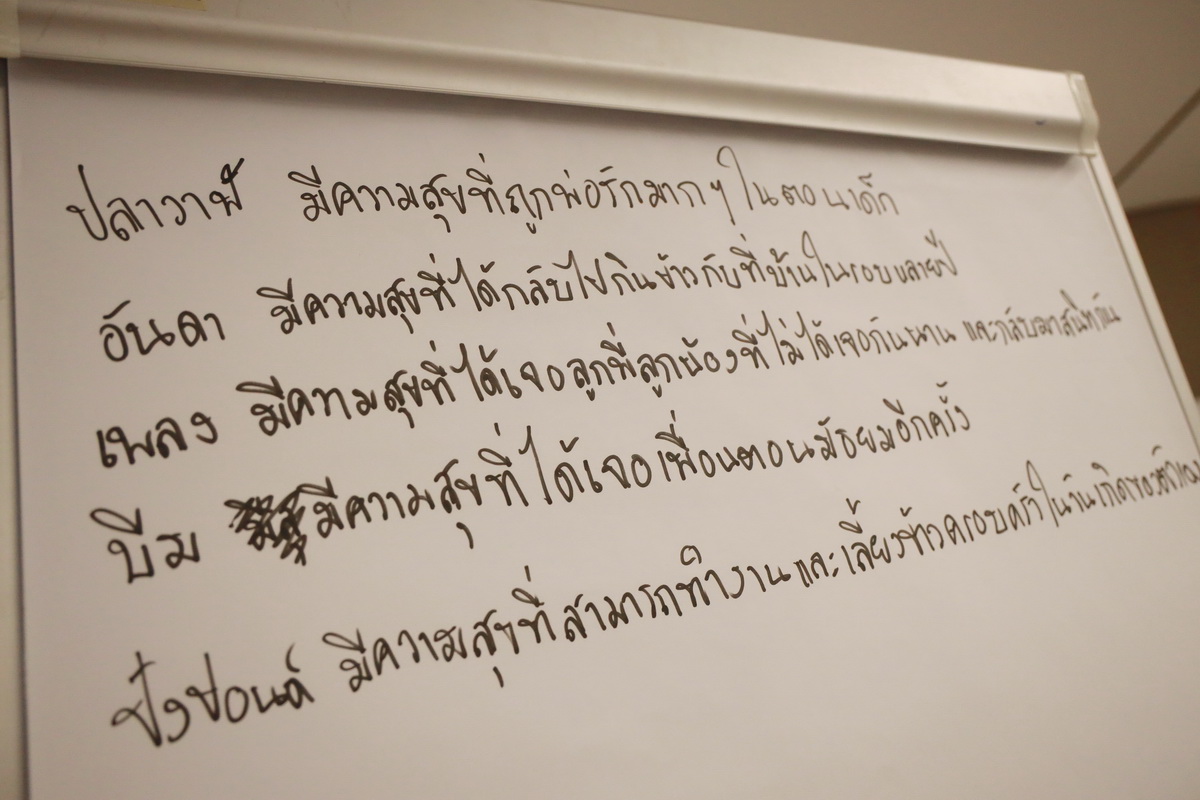 ปลาวาฬ มีความสุขที่ถูกพ่อรักมากๆ ในตอนเด็ก
อันดา มีความสุขที่ได้กลับไปกินข้าวกับที่บ้านในรอบหลายปี
เพลง มีความสุขที่ได้เจอลูกพี่ลูกน้องที่ไม่ได้เจอกันนาน และกลับมาสนิทกัน
บีม มีความสุขที่ได้เจอเพื่อนตอนมัธยมอีกครั้ง
ปังปอนด์ มีความสุขที่สามารถทำงาน และเลี้ยงข้าวครอบครัวในวันเกิดของ